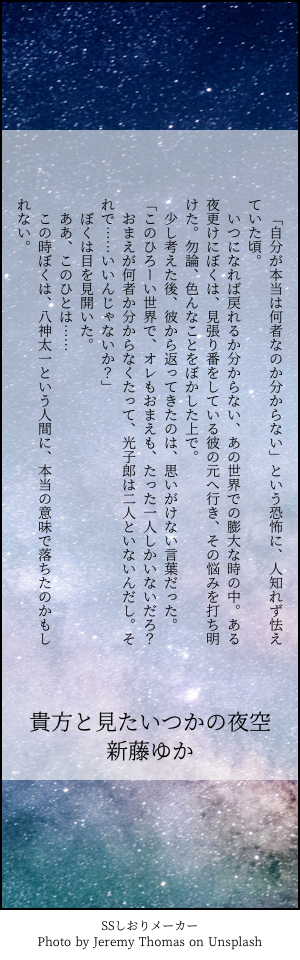 「自分が本当は何者なのか分からない」という恐怖に、人知れず怯え
ていた頃。
いつになれば戻れるか分からない、あの世界での膨大な時の中。ある
夜更けにぼくは、見張り番をしている彼の元へ行き、その悩みを打ち明
けた。勿論、色んなことをぼかした上で。
少し考えた後、彼から返ってきたのは、思いがけない言葉だった。
「このひろーい世界で、オレもおまえも、たった一人しかいないだろ？
おまえが何者か分からなくたって、光子郎は二人といないんだし。そ
れで……いいんじゃないか？」
ぼくは目を見開いた。
ああ、このひとは……
この時ぼくは、八神太一という人間に、本当の意味で落ちたのかもし
れない。
貴方と見たいつかの夜空
新藤ゆか
SSしおりメーカー
Photo by Jeremy Thomas on Unsplash